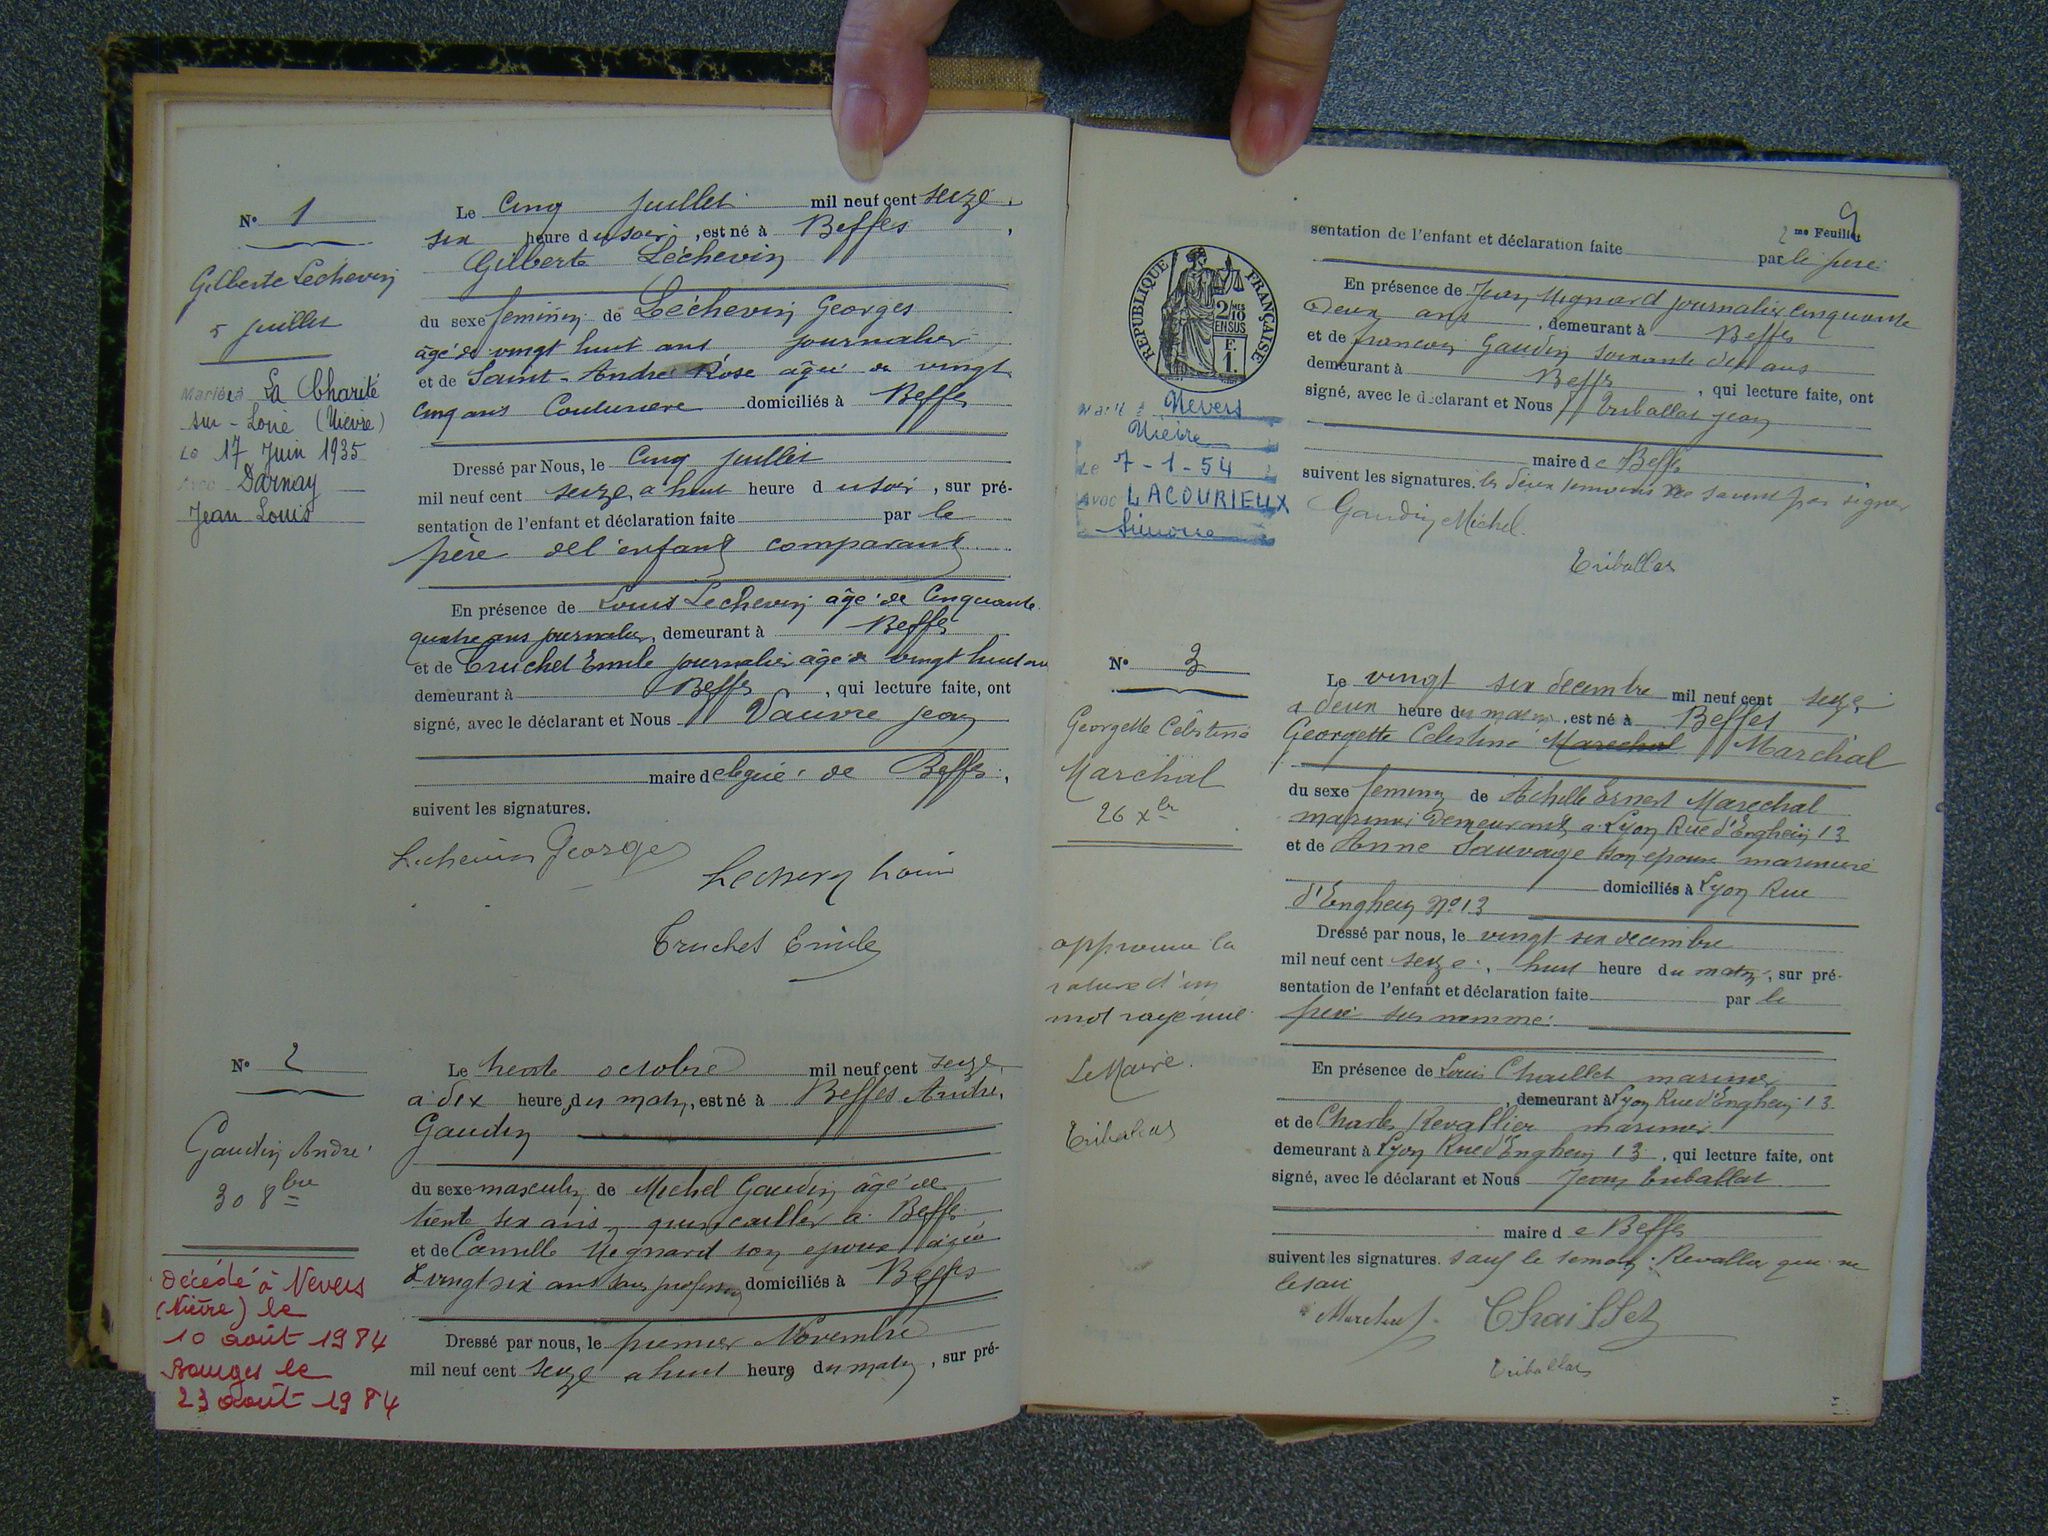 N° 1
Gilberte Lechevin
5 juillet
Mariée à La Charité
sur-Loire (Nièvre)
Le 17 Juin 1935
Avec Darnay
Jean Louis
Le cinq juillet mil neuf cent seize,
six heure du soir, est né à Beffes,
Gilberte Léchevin
du sexe feminin de Léchevin Georges
âgé de vingt huit ans journalier
et de Saint-André Rose âgée de vingt
cinq ans Couturière domiciliés à Beffes
Dressé par Nous, le cinq juillet
mil neuf cent seize, a huit heure du soir, sur pré-
sentation de l'enfant et déclaration faite par le
père de l'enfant comparant
En présence de Louis Lechevin âgé de cinquante
quatre ans journalier, demeurant à Beffes
et de Truchet Emile journalier âgé de vingt huit ans
demeurant à Beffes, qui lecture faite, ont
signé, avec le déclarant et Nous Vauvre jean
maire delegué de Beffes,
suivent les signatures.
Lechevin Georges
Lechevin Louis
Truchet Emile
N° 2
Gaudin André
30 8bre
Décédé à Nevers
(Nièvre) le
10 août 1984
Bauges le
23 août 1984
Le trente octobre mil neuf cent seize,
a dix heure du matin, est né à Beffes André,
Gaudin
du sexe masculin de Michel Gaudin âgé de
trente six ans, quincailler a Beffes
et de Camille Mignard son epouse agée
de vingt six ans sans profession domiciliés à Beffes
Dressé par nous, le premier Novembre
mil neuf cent seize a huit heure du matin, sur pré-
2me Feuillet
9
sentation de l'enfant et déclaration faite par le pere
En présence de Jean Mignard journalier cinquante
deux ans, demeurant à Beffes
et de francois Gaudin soixante dix ans
demeurant à Beffes, qui lecture faite, ont
signé, avec le declarant et Nous Triballat jean
maire de Beffes
suivent les signatures. les deux temoins ne savent pas signer
Gaudin Michel.
Triballat
RÉPUBLIQUE FRANÇAISE
2/10
EN SUS
F.
1.
Marié à Nevers
Nièvre
Le 7-1-54
Avec LACOURIEUX
Simone
N° 3
Georgette Célestine
Marchal
26 Xbr
approuvé la
rature d'un
mot rayé nul
Le Maire.
Triballat
Le vingt six decembre mil neuf cent seize,
a deux heure du matin, est né à Beffes
Georgette Celestine Marechal Marchal
du sexe feminin de Achille Ernest Marechal
marinier demeurant a Lyon Rue d'Enghein 13
et de Anne Sauvage son epouse mariniere
domiciliés à Lyon Rue
d'Enghein N° 13
Dressé par nous, le vingt six decembre
mil neuf cent seize, huit heure du matin, sur pré-
sentation de l'enfant et déclaration faite par le
pere sus nommé.
En présence de Louis Chaillet marinier
, demeurant à Lyon Rue d'Enghein 13
et de Charles Revallier marinier
demeurant à Lyon Rue d'Enghein 13, qui lecture faite, ont
signé, avec le déclarant et Nous Jean Triballat
maire de Beffes
suivent les signatures. sauf le temoin Revallier qui ne
le sait
Marchal
Chaillet
Triballat